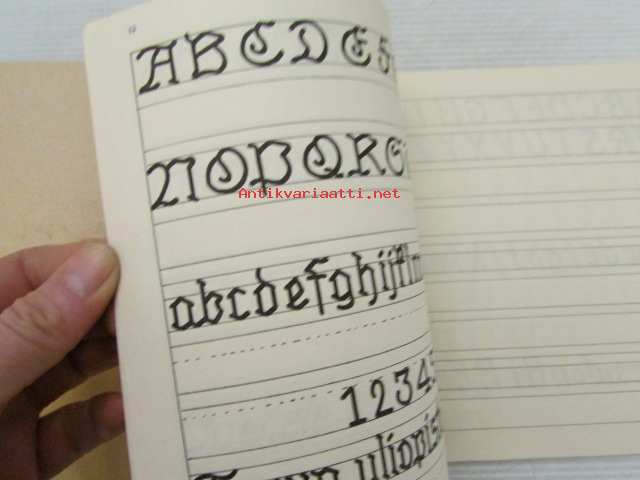 A B C D E F
N O P Q R S
Antikvariaatti.net
abcdefghijklm
1 2 3 4 5
yliopist